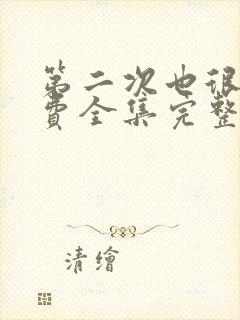 第二次也很
費全集完整
清繪